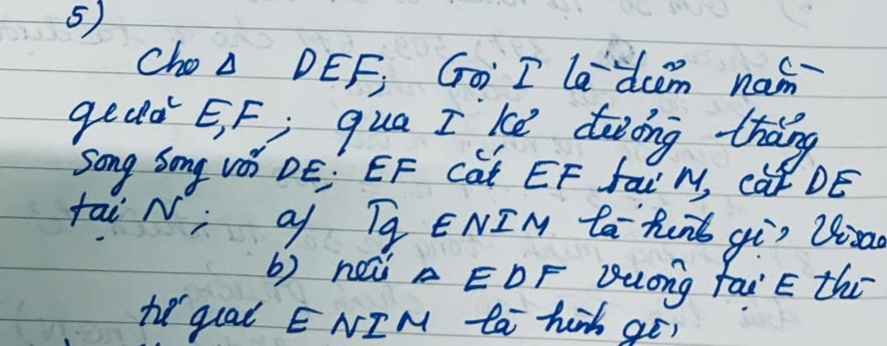 5)
Cho Δ DEF; Gọi I là điểm nằm
giữa E,F; qua I kẻ đường thẳng
song song với DE; EF cắt EF tại M, cắt DE
tại N; a) Tg ENIM là hình gì, Vì sao
b) nếu Δ EDF vuông tại E thì
tứ giác ENIM là hình gì,